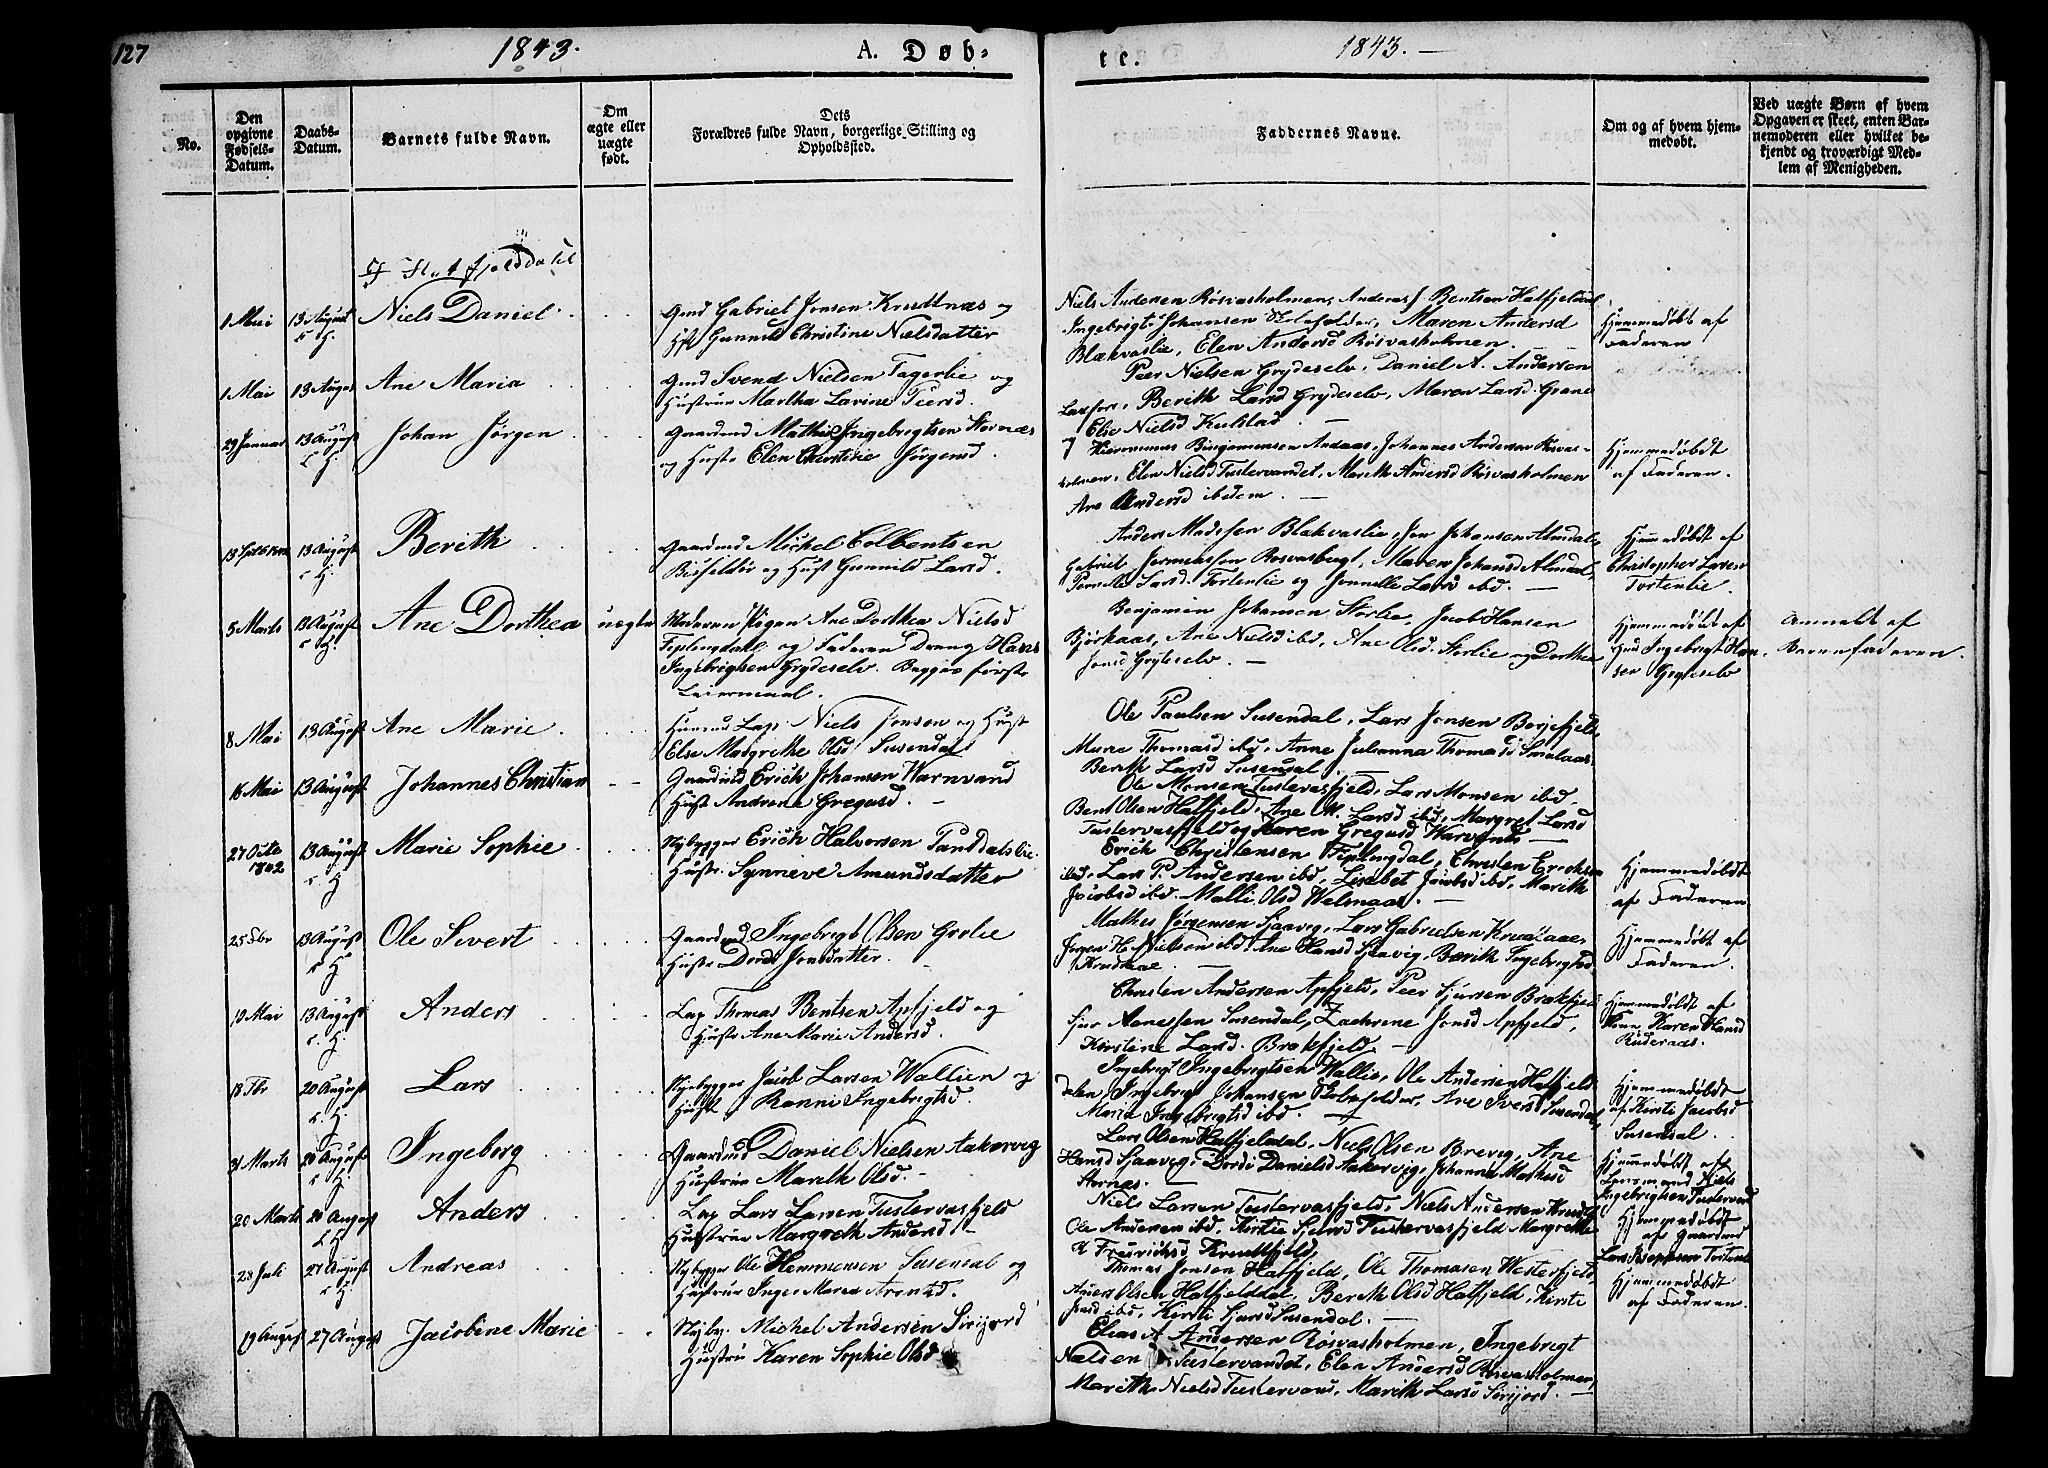 127
1843.
A. Døb-
te.
1843.
No.
Den opgivne Fødsels-Datum.
Daabs-Datum.
Barnets fulde Navn.
Om ægte eller uægte født.
Dets
Forældres fulde Navn, borgerlige Stilling og
Opholdssted.
Faddernes Navne.
Om og af hvem hjem-
medøbt.
Ved uægte Børn af hvem
Opgaven er skeet, enten Bar-
nemoderen eller hvilket be-
kjendt og troværdigt Med-
lem af Menigheden.
1 Mai 13 August Niels Daniel Gmd Gabriel Jonsen Krudtnæs og
Gunnild Christine Nielsdatter
Niels Andersen Røsvasholmen, Anders J. Bentsen Hatfjelddal
Ingebrigt Johansen Maren Andersd
Blækvaslie, Elen Andersd Røsvasholmen.
Hjemmedøbt af
Faderen
1 Mai 13 August Ane Maria Gmd Svend Nielsen Fagerlie og
Hustrue Martha Lavine Peersd.
Peer Nielsen Grydeselv, Daniel A. Andersen
Laxfors, Berith Larsd Grydeselv, Maren Larsd. Grane
Else Nielsd Kulstad
29 Januar 13 August Johan Jørgen Gaardmd Mathis Ingebrigtsen Stornæs
og Hustr Elen Christine Jørgensd.
Johannes Andersen Røsvas-
holmen, Elen Nielsd Tustervandet, Marith Andersd Røsvasholmen
Ane Andersd ibidem.
Hjemmedøbt
af Faderen.
13 August Berith Gaardmd Michel Colbentsen
og Hust Gunnild Larsd.
Anders Madssen Blakvaslie, Jon Johansen Almdal,
Gabriel Røsvasbergt, Maren Johansd Almdal,
Pernelle Larsd. Tortenlie og Larsd ibd.
Hjemmedøbt af
Christopher Larsen
Tortenlie
5 Marts 13 August Ane Dorthea uægte Moderen Pigen Ane Dorthea Nielsd
Fiplingdal og Faderen Dreng Hans
Ingebrigtsen Grydeselv. Begges første
Leiermaal.
Benjamin Johansen Storlie, Jacob Hansen
Bjørkaas, Ane Nielsd ibd, Ane Olsd. Storlie og Dorthea
Jonsd Grydeselv.
Hjemmedøbt af
Gmd Ingebrigt Han-
sen Grydeselv
Anmeldt af
Barnefaderen.
8 Mai 13 August Ane Marie Lap Niels Jonsen og Hust
Else Margrethe Olsd Susendal
Ole Paulsen Susendal, Lars Jonsen Børjefjeld,
Thomasd ibd, Anne Julianna Thomasd
Berith Larsd Susendal.
16 Mai 13 August Johannes Christian Gaardmd Erich Johansen Varnvand
Hustr Andrine Gregusd.
Ole Monsen Tustervasfjeld, Lars Monsen ibd,
Bent Olsen Hatfjeld, Ane M. Larsd ibd, Margret Larsd
Tustervasfjeld og Karen Gregusd
27 Octbr 1842 13 August Marie Sophie Nybygger Erich Halvorsen
Hustr. Synneve Amundsdatter
Erich Christensen Fiplingdal, Christen Erichsen
ibd, Lars P. Andersen ibd, Lisebet Jacobsd ibd, Marith
Jacobsd ibd. Malli Olsd
Hjemmedøbdt
af Faderen
25 13 August Ole Sivert Gaardmd Ingebrigt Olsen Grølie
Hustr Dordi Jonsdatter.
Mathis Jørgensen Sjaavig, Lars Gabrielsen
Jørgen H. Nielsen ibd Ane Hansd Sjaavig, Berith Ingebrigtsd
Hjemmedøbt af
Faderen.
10 Mai 13 August Anders Lap Thomas Bentsen Apfjeld og
Hustr Ane Marie Andersd.
Christen Andersen Apfjeld, Peer Sjursen Brakfjeld
Sjur Susendal, Zachrine Jonsd Apfjeld,
Kirstine Larsd. Brakfjeld.
Hjemmedøbt af
Karen Hansd
18 20 August Lars Nybygger Jacob Larsen Wallien og
Hustr Ranni Ingebrigtsd.
Ingebrigt Ingebrigtsen Wallie, Ole Andersen Hatfjeld-
dalen, Ingebrigt Johansen Ane Iversd Susendal,
Maria Ingebrigtsd ibd.
Hjemmedøbdt
af Kirsti Jacobsd
Susendal
31 Marts 20 August Ingeborg Gaardmd Daniel Nielsen Aakervig
Hustrue Marith Olsd.
Lars Olsen Hatfjelddal, Niels Olsen Brevig, Ane
Hansd Sjaavig, Dordi Danielsd Aakervig, Johanna Mathisd
Stornæs.
Hjemmedøbt af
Niels
Ingebrigtsen Tustervand
20 Marts 20 August Anders Lap Lars Larsen Tustervasfjeld
Hustrue Margreth Andersd.
Niels Larsen Tustervasfjeld, Niels Andersen
Ole Andersen ibd, Kirstie Sjursd Tustervasfjeld Margrethe
Fredrichsd Krudtfjeld,
Hjemmedøbt
af Gaardmd
28 Juli 27 August Andreas Nybygger Ole Hemmensen Susendal og
Hustrue Inger Maria Arontsd.
Thomas Jonsen Hatfjeld, Ole Thomasen Westerfjeld
Anders Olsen Hatfjelddal, Berith Olsd Hatfjeld, Kirste
Jonsd ibd, Kirsti Sjursd Susendal.
Hjemmedøbdt
af Faderen.
19 August 27 August Jacobine Marie Nyby. Michel Andersen Sørijord
Hustrue Karen Sophie Olsd
Elias A. Andersen Røsvasholmen, Ingebrigt
Nielsen Tustervandet, Elen Andersd Røsvasholmen,
Marith Nielsd Tustervand, Marith Larsd Sørijord.